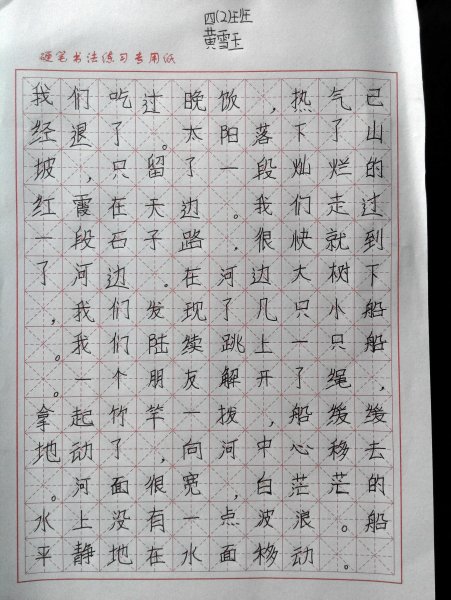 四(2)班
黄雪玉
硬笔书法练习专用纸
我们吃过晚饭,热气已
经退了。太阳落下了山
坡,只留了一段灿烂的
红霞在天边。我们走过
一段石子路,很快就到
了河边。在河边大树下
,我们发现了几只小船
。我们陆续跳上一只船
。一个朋友解开了绳,
拿起竹竿一拨,船缓缓
地动了,向河中心移去
。河面很宽,白茫茫的
水上没有一点波浪。船
平静地在水面移动。